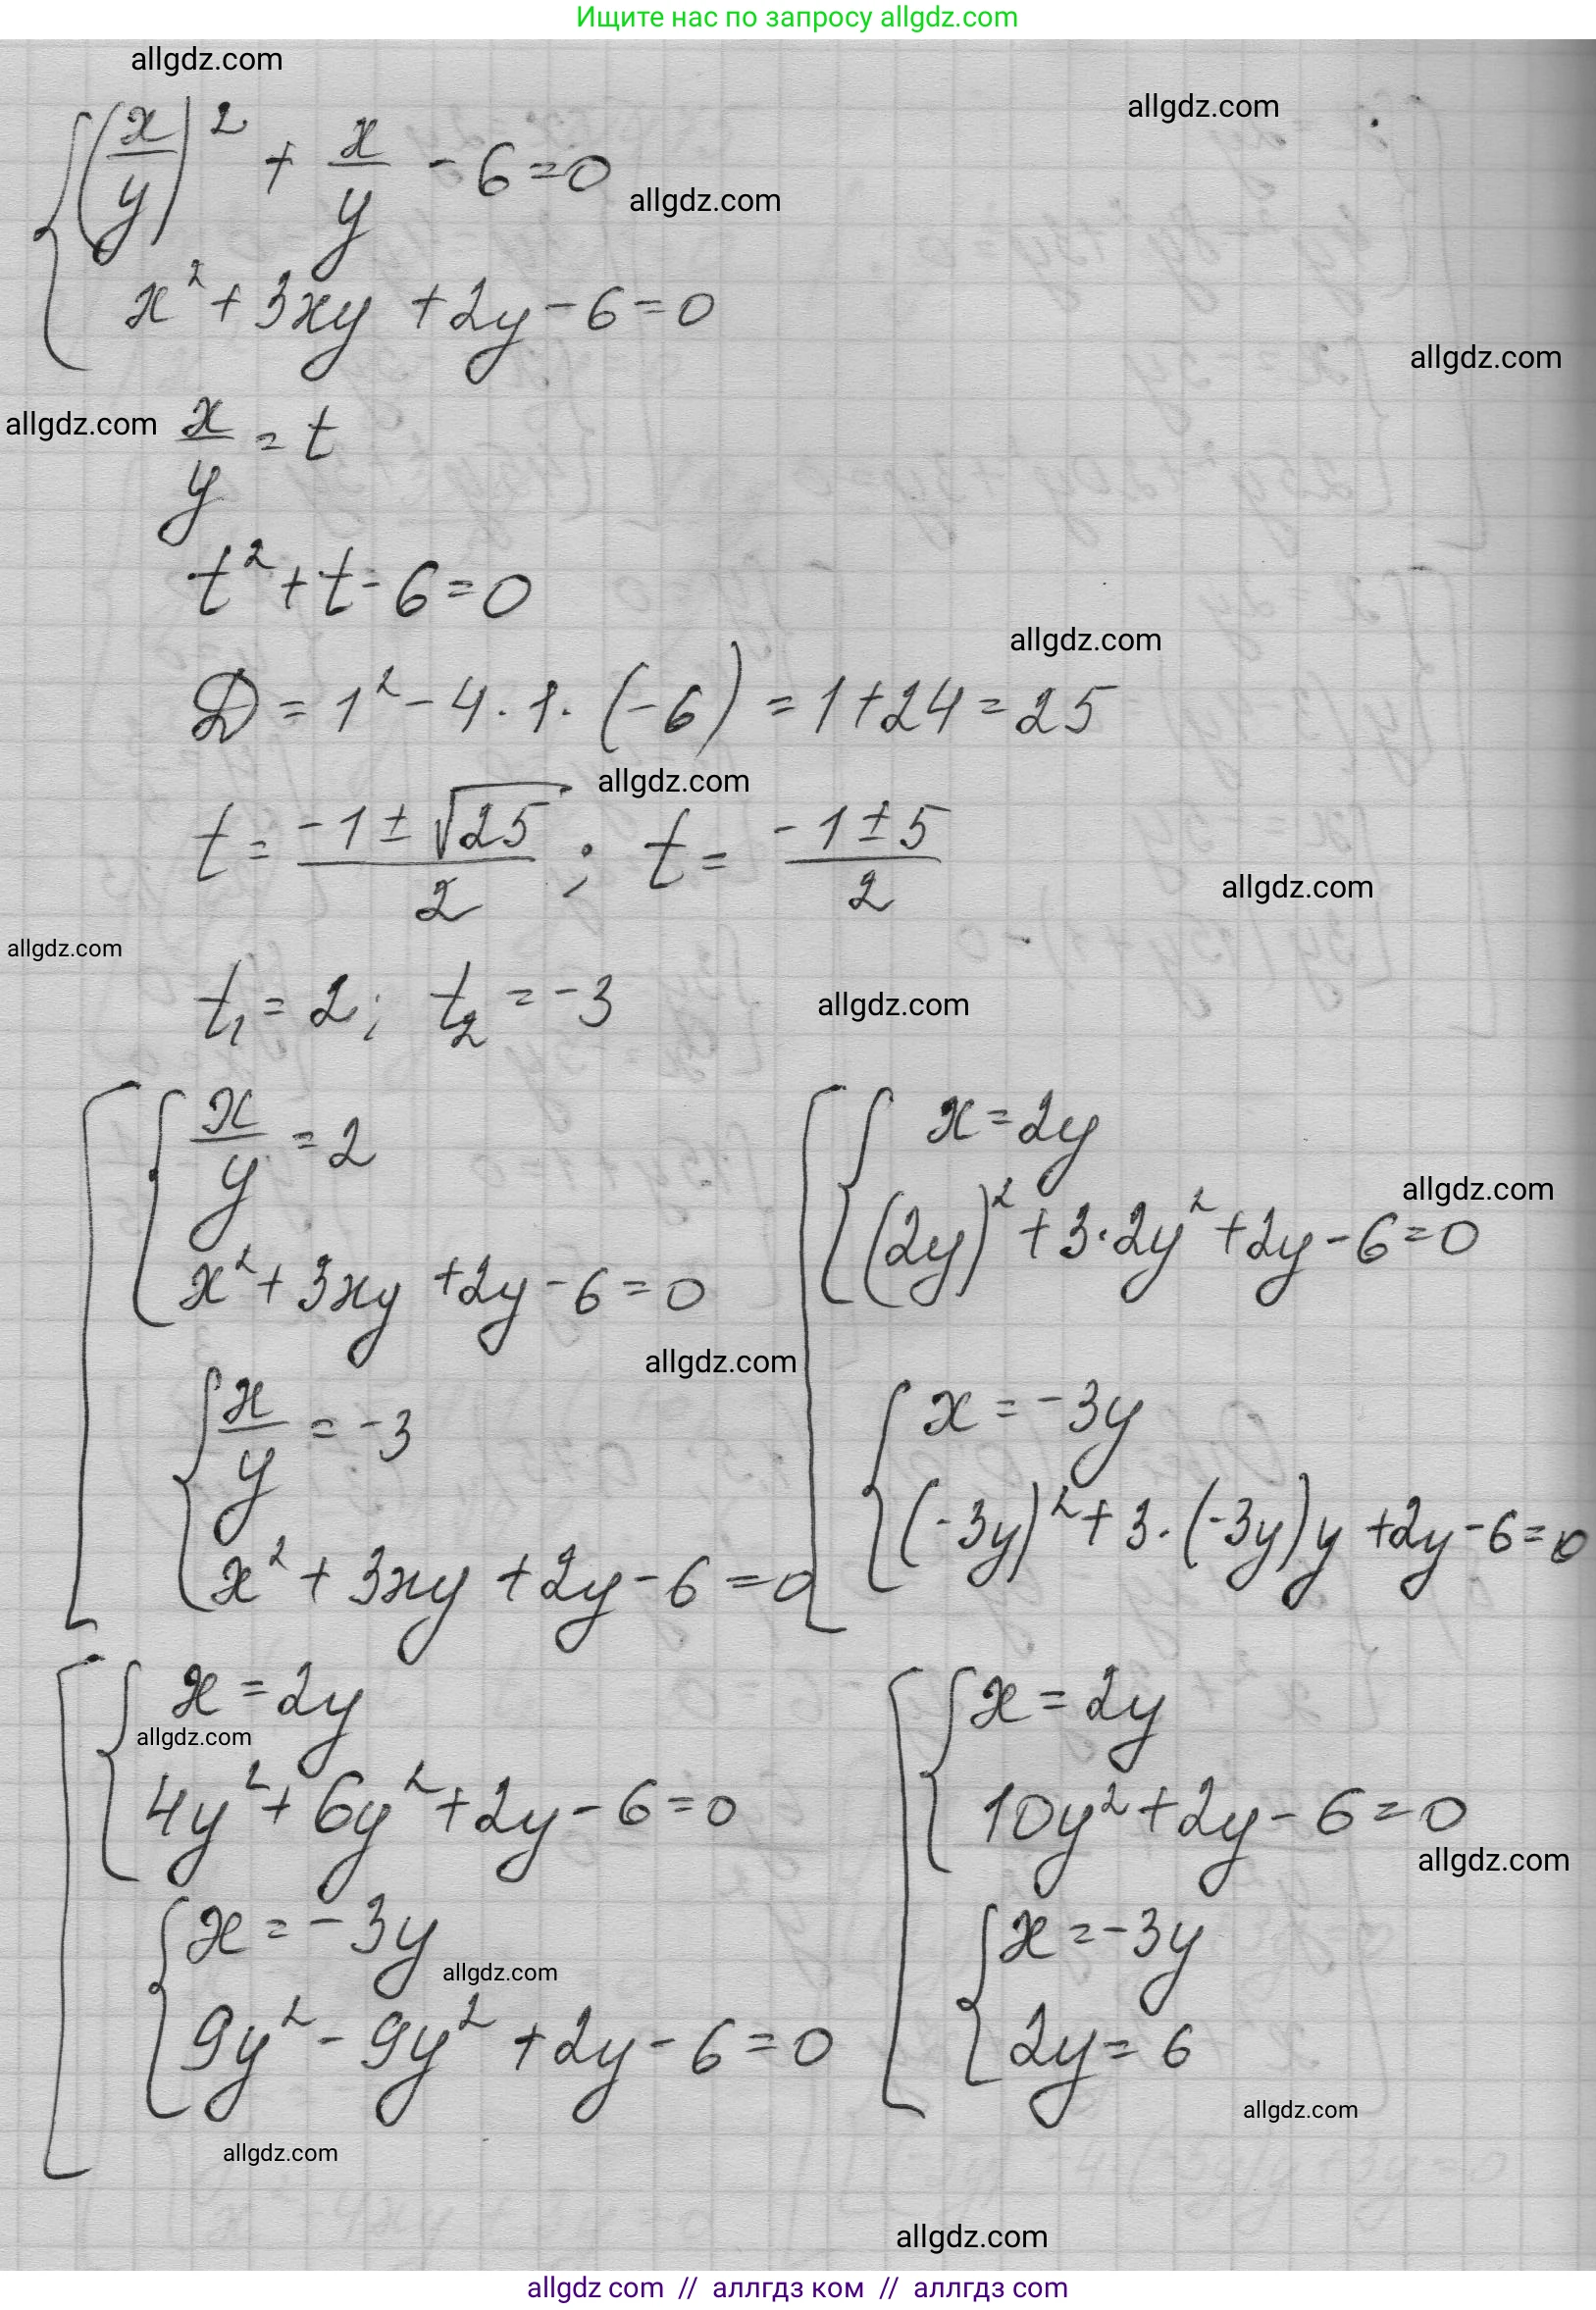 Ищите нас по запросу allgdz.com
allgdz.com
allgdz.com
(x/y)² + x/y - 6 = 0
allgdz.com
x² + 3xy + 2y - 6 = 0
allgdz.com
allgdz.com
x/y = t
t² + t - 6 = 0
allgdz.com
D = 1² - 4 · 1 · (-6) = 1 + 24 = 25
allgdz.com
t = (-1 ± √25)/2 ; t = (-1 ± 5)/2
allgdz.com
allgdz.com
t₁ = 2; t₂ = -3
allgdz.com
x/y = 2
x² + 3xy + 2y - 6 = 0
x = 2y
allgdz.com
(2y)² + 3·2y² + 2y - 6 = 0
allgdz.com
x/y = -3
x² + 3xy + 2y - 6 = 0
x = -3y
(-3y)² + 3·(-3y)y + 2y - 6 = 0
x = 2y
allgdz.com
4y² + 6y² + 2y - 6 = 0
x = 2y
10y² + 2y - 6 = 0
allgdz.com
x = -3y
allgdz.com
9y² - 9y² + 2y - 6 = 0
x = -3y
2y = 6
allgdz.com
allgdz.com
allgdz.com
allgdz com // аллгдз ком // аллгдз com